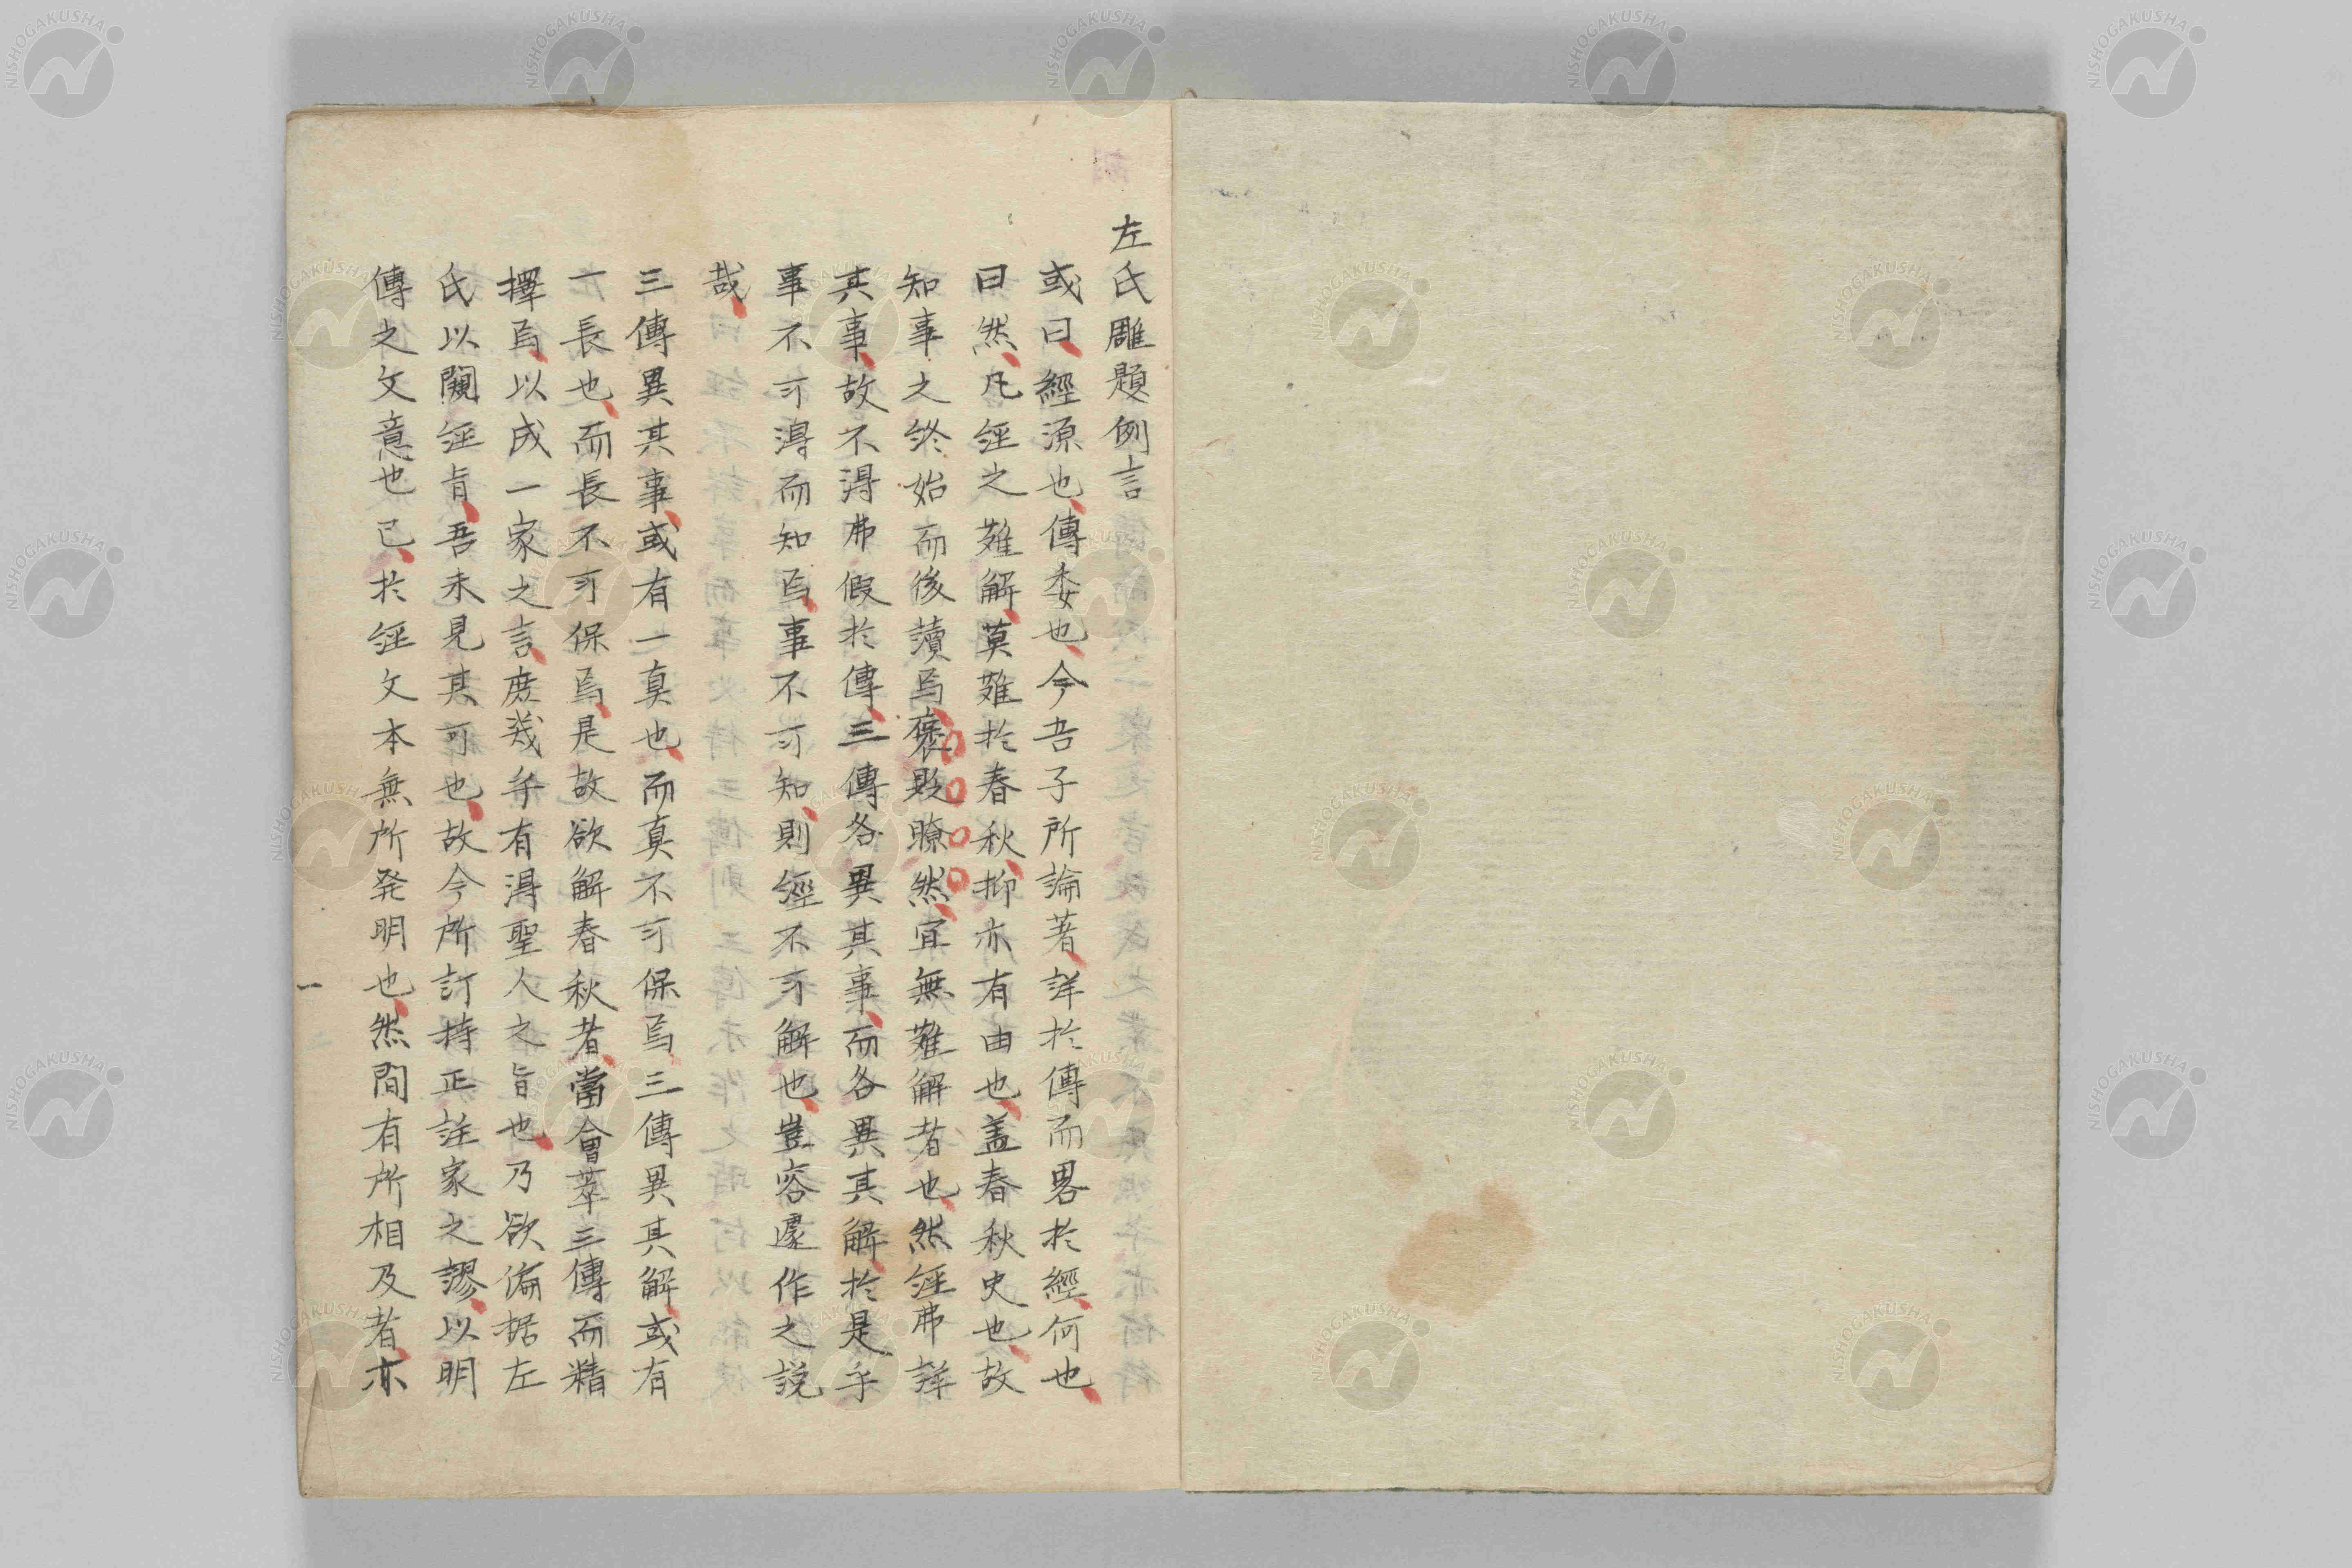 左氏雕題例言
或曰經源也傳委也今吾子所論著詳於傳而畧於經何也
曰然凡經之難解莫難於春秋抑亦有由也盖春秋史也故
知事之終始而後讀焉褒貶瞭然宜無難解者也然經弗詳
其事故不得弗假於傳三傳各異其事而各異其解於是乎
事不可得而知焉事不可知則經不可解也豈容遽作之説
哉
三傳異其事或有一真也而真不可保焉三傳異其解或有
一長也而長不可保焉是故欲解春秋者當會萃三傳而精
擇焉以成一家之言庶幾乎有得聖人之旨也乃欲偏据左
氏以闚經旨吾未見其可也故今所訂持正註家之謬以明
傳之文意也已於經文本無所発明也然間有所相及者亦
一
NISHOGAKUSHA